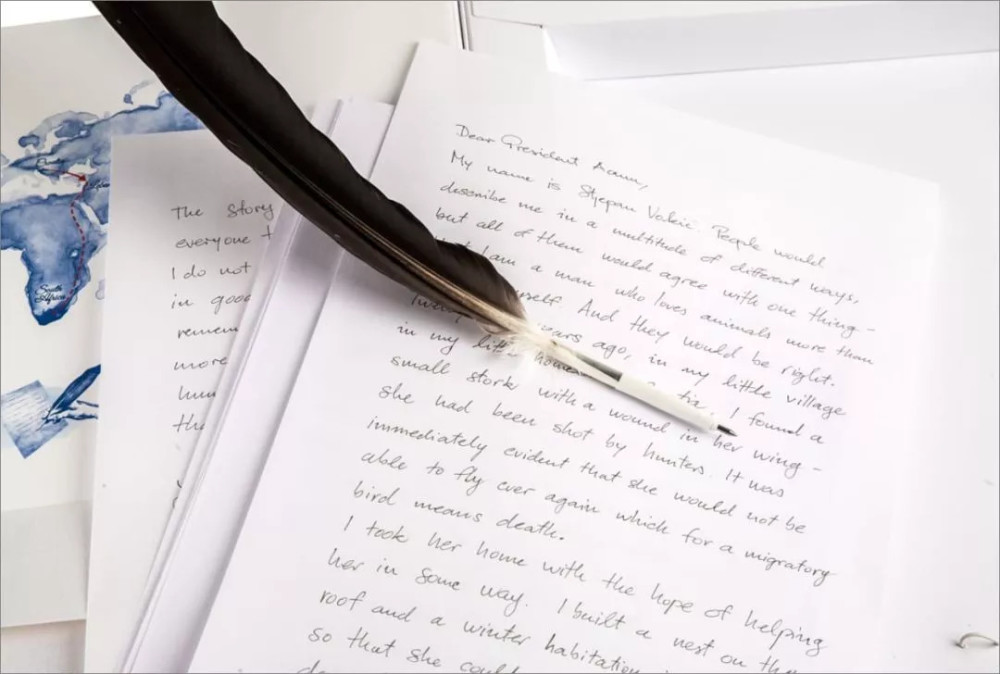 South
Africa
The story
everyone t
I do not
in good
remem
more
hum
the
Dear President Aoun,
My name is Stjepan Vokić. People would
describe me in a multitude of different ways,
but all of them would agree with one thing –
I am a man who loves animals more than
myself. And they would be right.
years ago, in my little village
in my little home I found a
small stork with a wound in her wing –
she had been shot by hunters. It was
immediately evident that she would not be
able to fly ever again which for a migratory
bird means death.
I took her home with the hope of helping
her in some way. I built a nest on the
roof and a winter habitation
so that she could